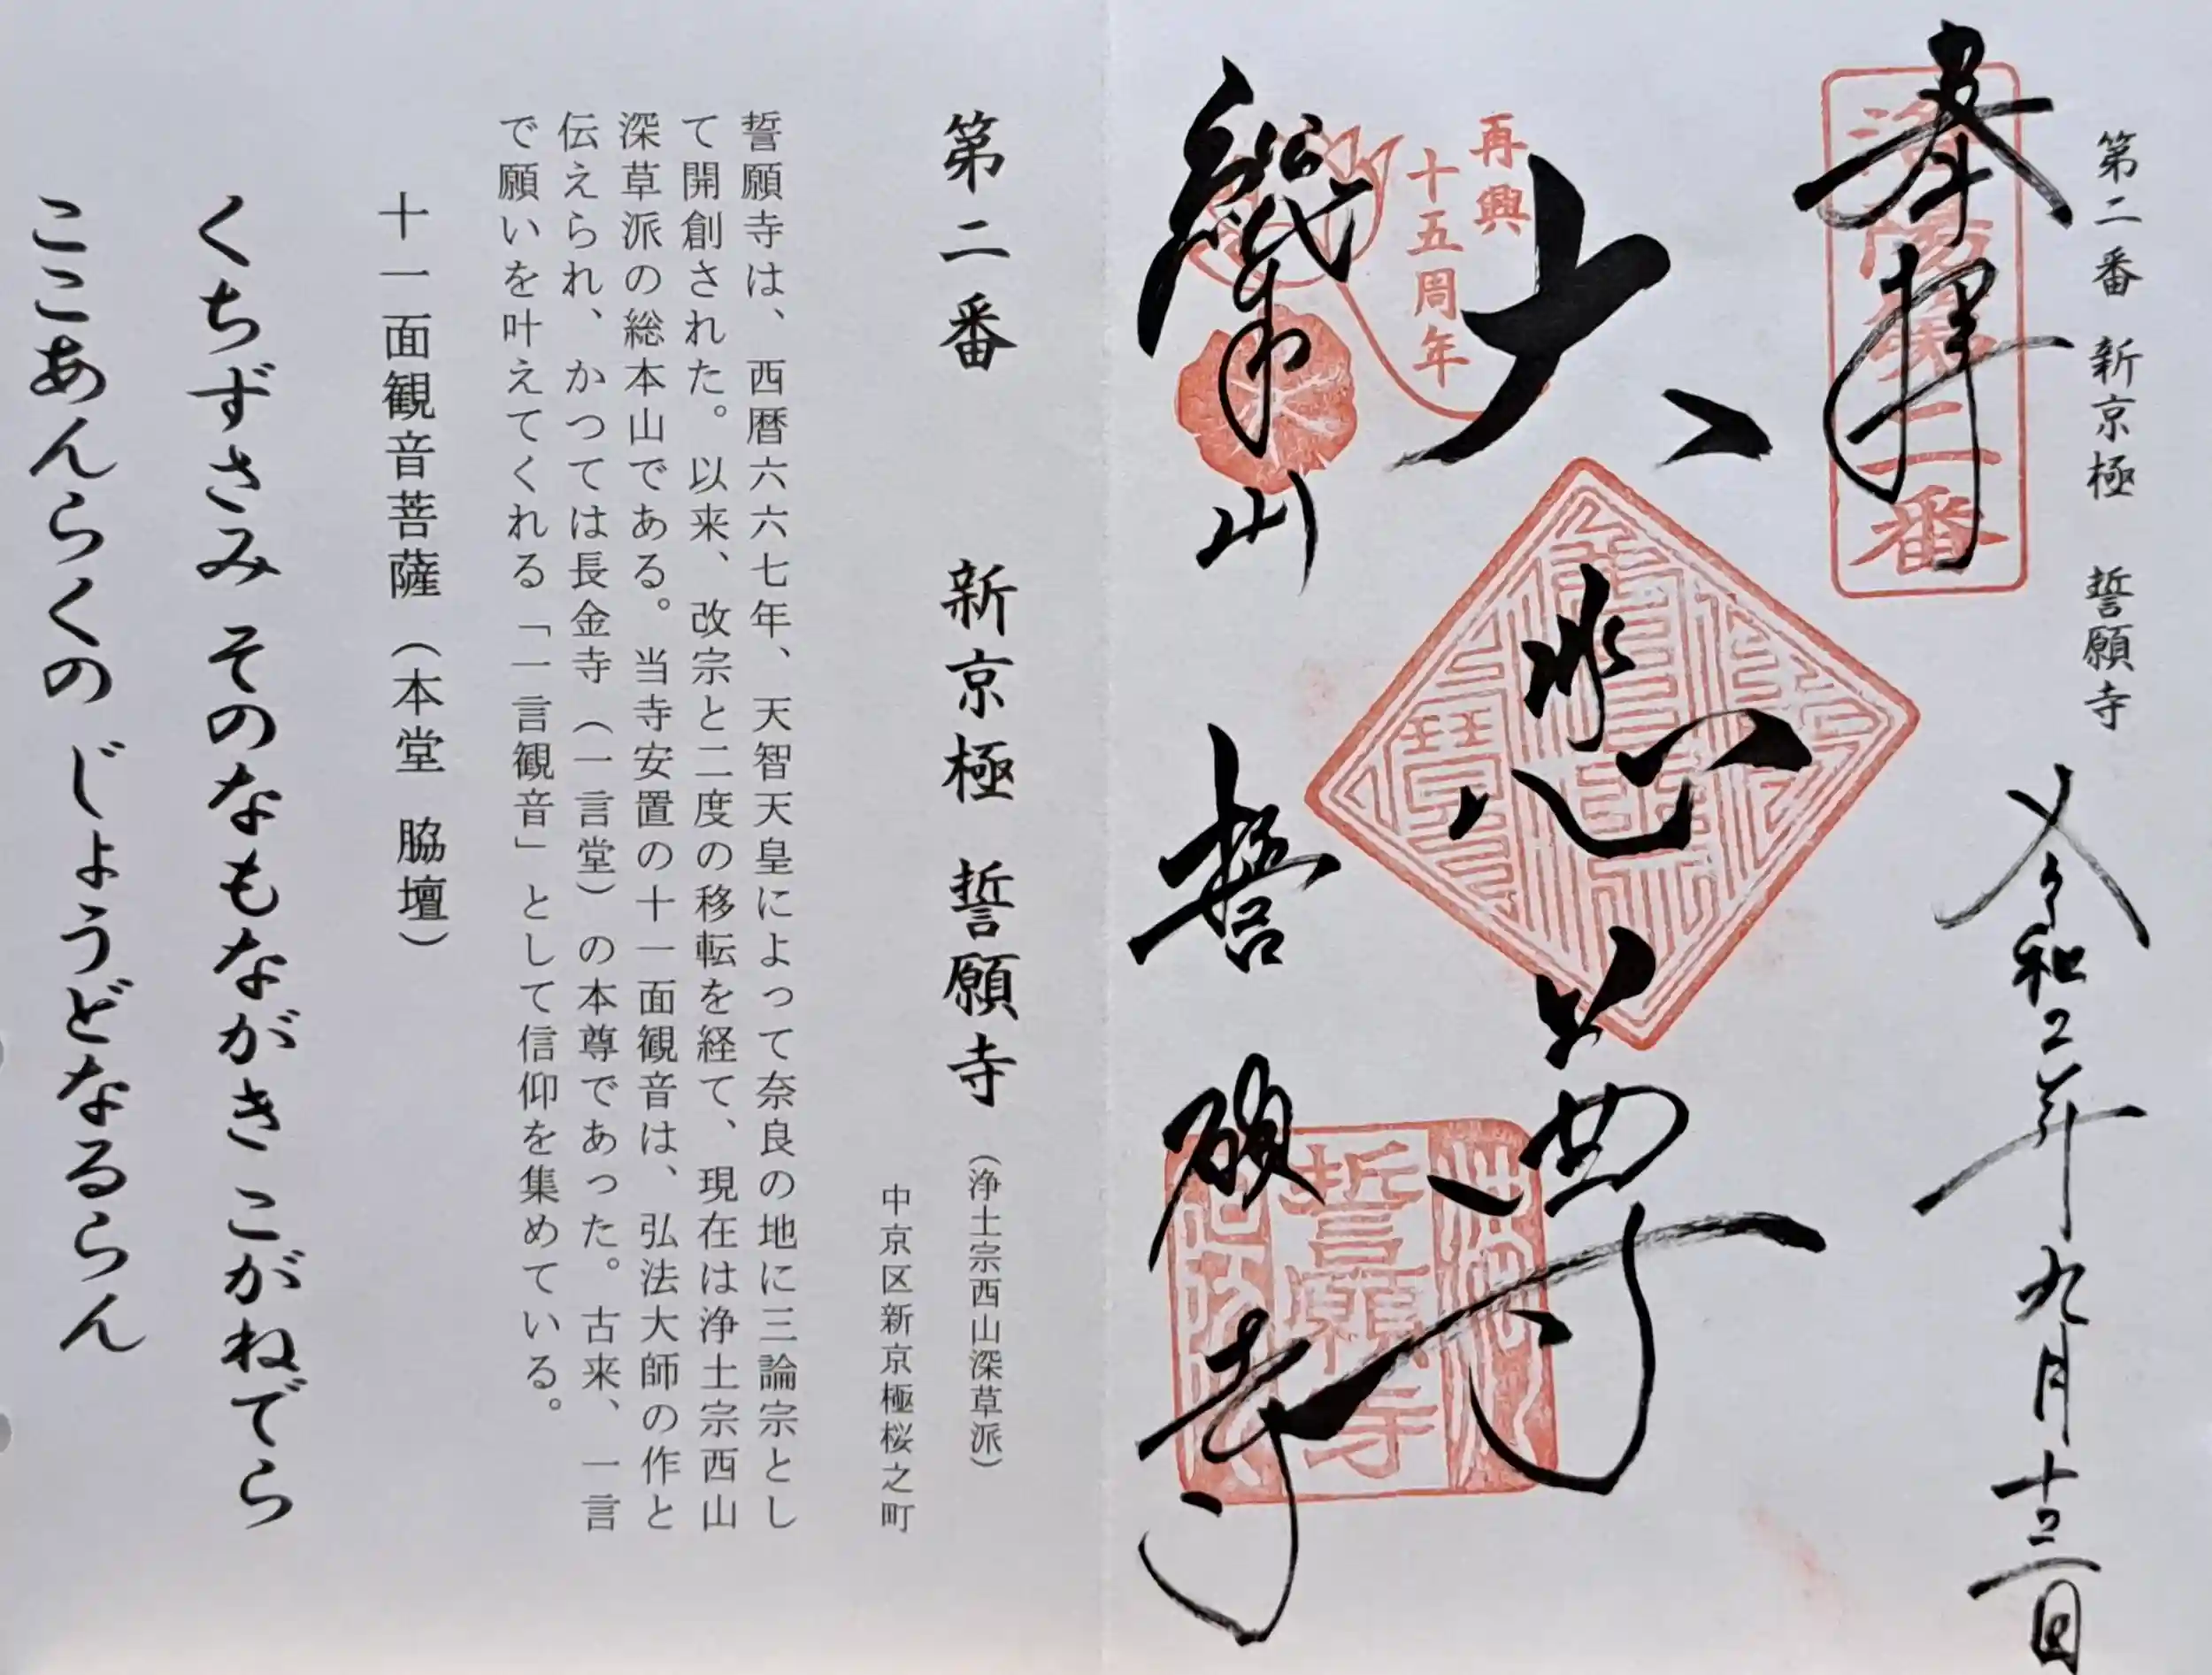 第二番 新京極 誓願寺
奉拝
洛陽第二番
令和2年九月十三日
大悲尊
再興
十五周年
誓願寺
総本山
誓願寺
第二番 新京極 誓願寺(浄土宗西山深草派)
中京区新京極桜之町
誓願寺は、西暦六六七年、天智天皇によって奈良の地に三論宗とし
て開創された。以来、改宗と二度の移転を経て、現在は浄土宗西山
深草派の総本山である。当寺安置の十一面観音は、弘法大師の作と
伝えられ、かつては長金寺(一言堂)の本尊であった。古来、一言
で願いを叶えてくれる「一言観音」として信仰を集めている。
十一面観音菩薩(本堂 脇壇)
くちずさみ そのなもながき こがねでら
ここあんらくの じょうどなるらん